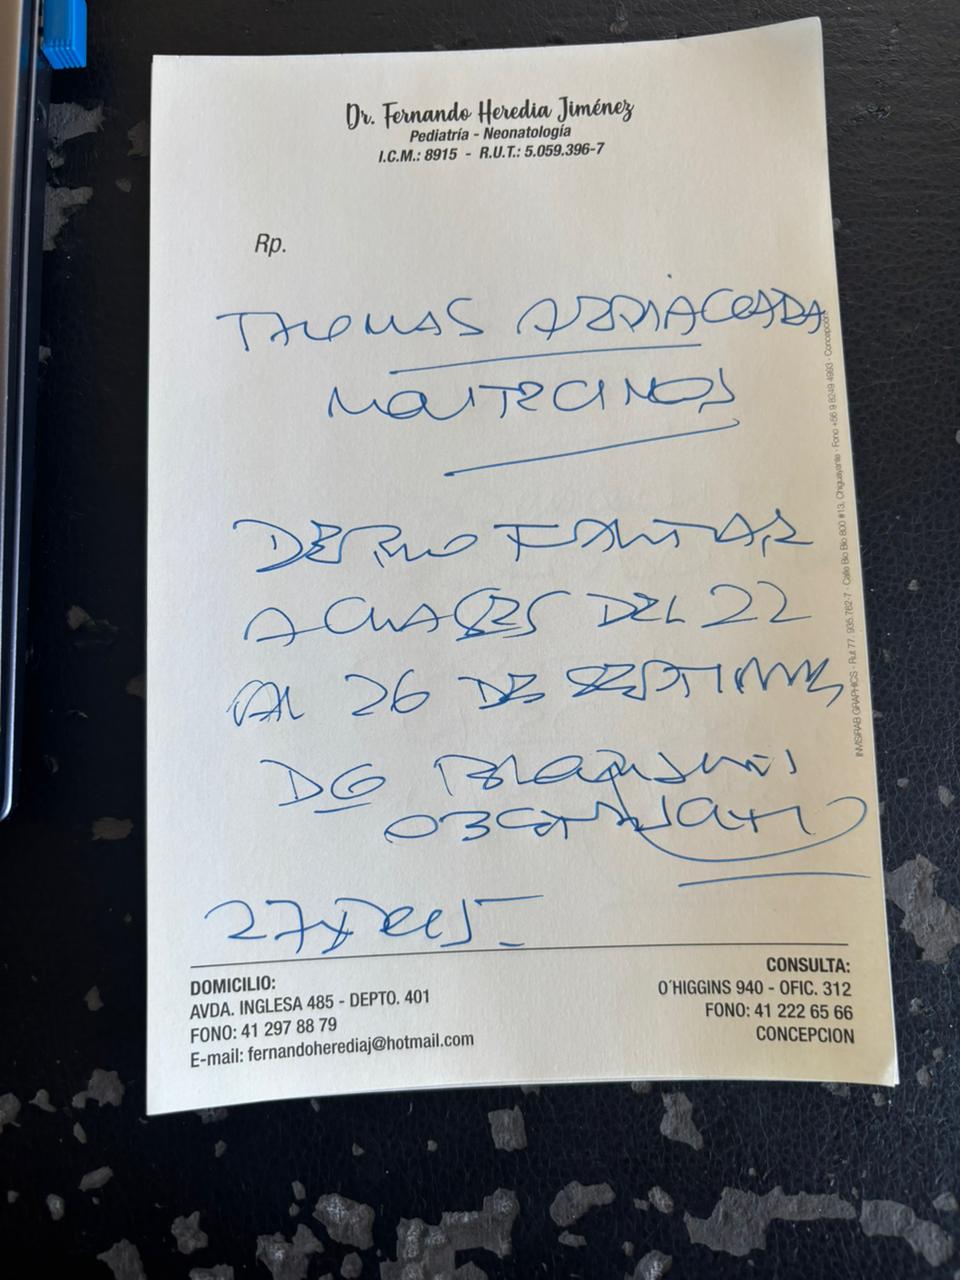 Dr. Fernando Heredia Jiménez
Pediatría - Neonatología
I.C.M.: 8915 - R.U.T.: 5.059.396-7
Rp.
THOMAS ARRIAGADA
MONTECINOS
DEBIO FALTAR
A CLASES DEL 22
AL 26 DE SEPTIEMBRE
DG BRONQUITIS
OBSTRUCTIVA
DOMICILIO:
AVDA. INGLESA 485 - DEPTO. 401
FONO: 41 297 88 79
E-mail: fernandoherediaj@hotmail.com
CONSULTA:
O´HIGGINS 940 - OFIC. 312
FONO: 41 222 65 66
CONCEPCION
INVISIRAB GRAPHICS - Rut 77. 935.762-7 - Calle Bio Bio 800 #13, Chiguayante - Fono +56 9 8249 4993 - Concepción